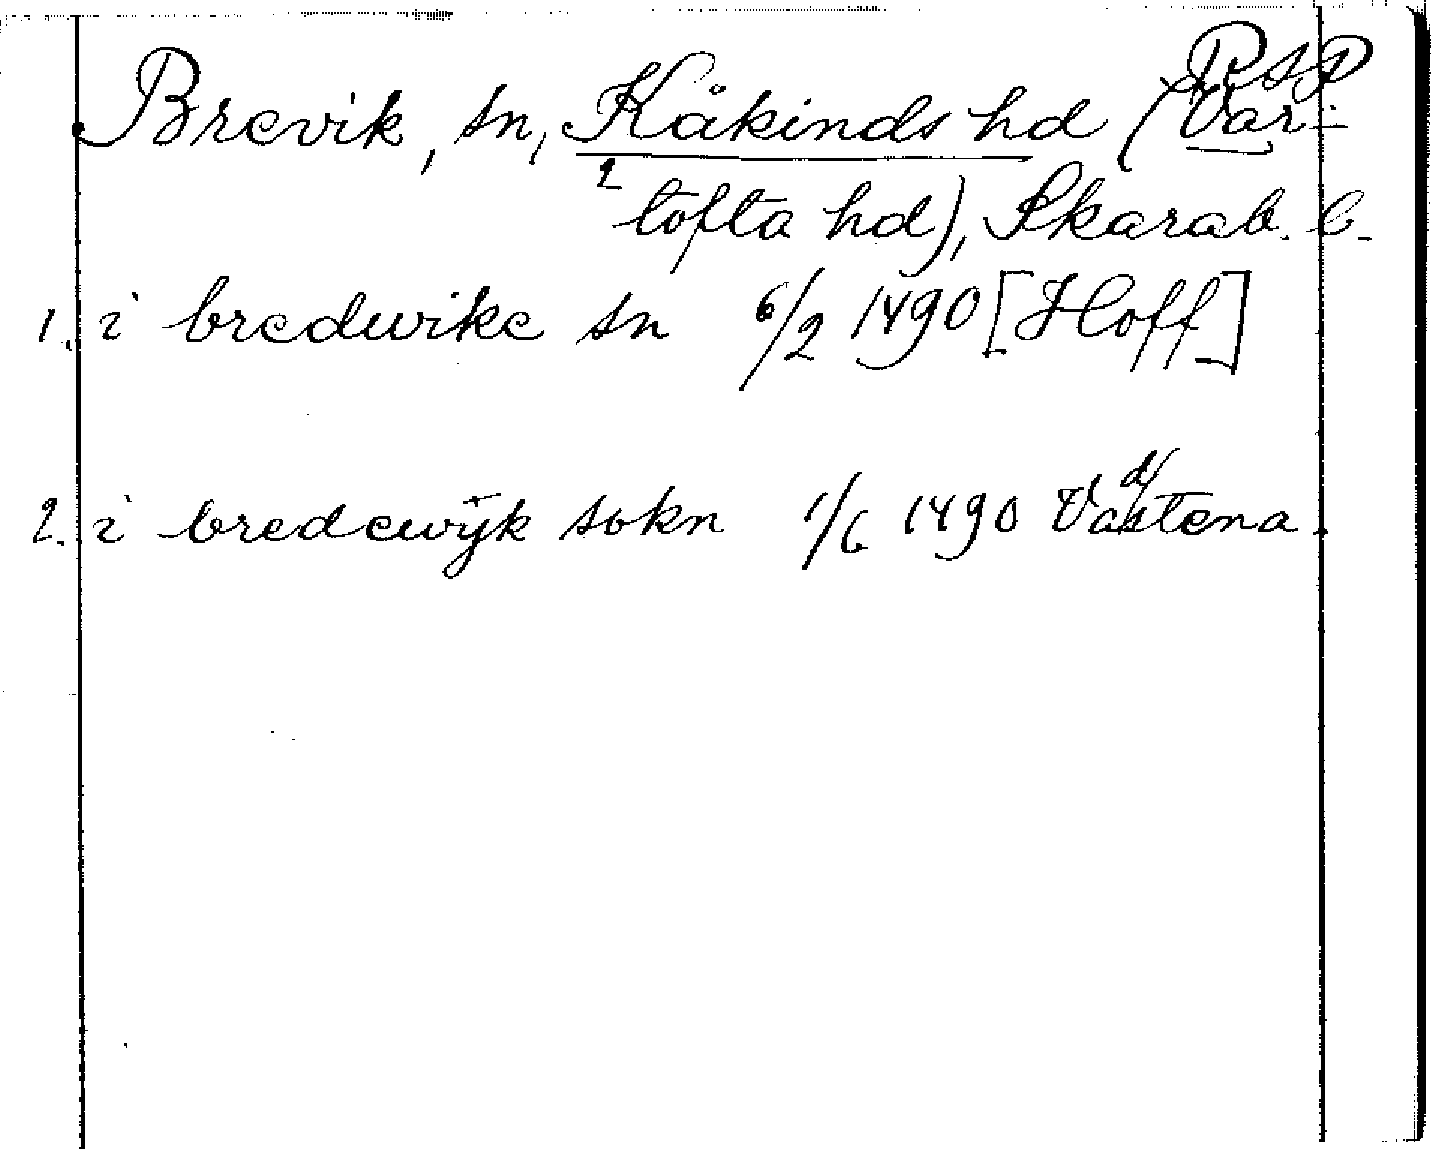 RAP
Brevik, sn, Kåkinds hd (Var-
2 tofta hd), Skarab. l.
1. i bredwike sn 6/2 1490 [Hoff]
2. i bredewijk sokn 1/6 1490 Vadstena.